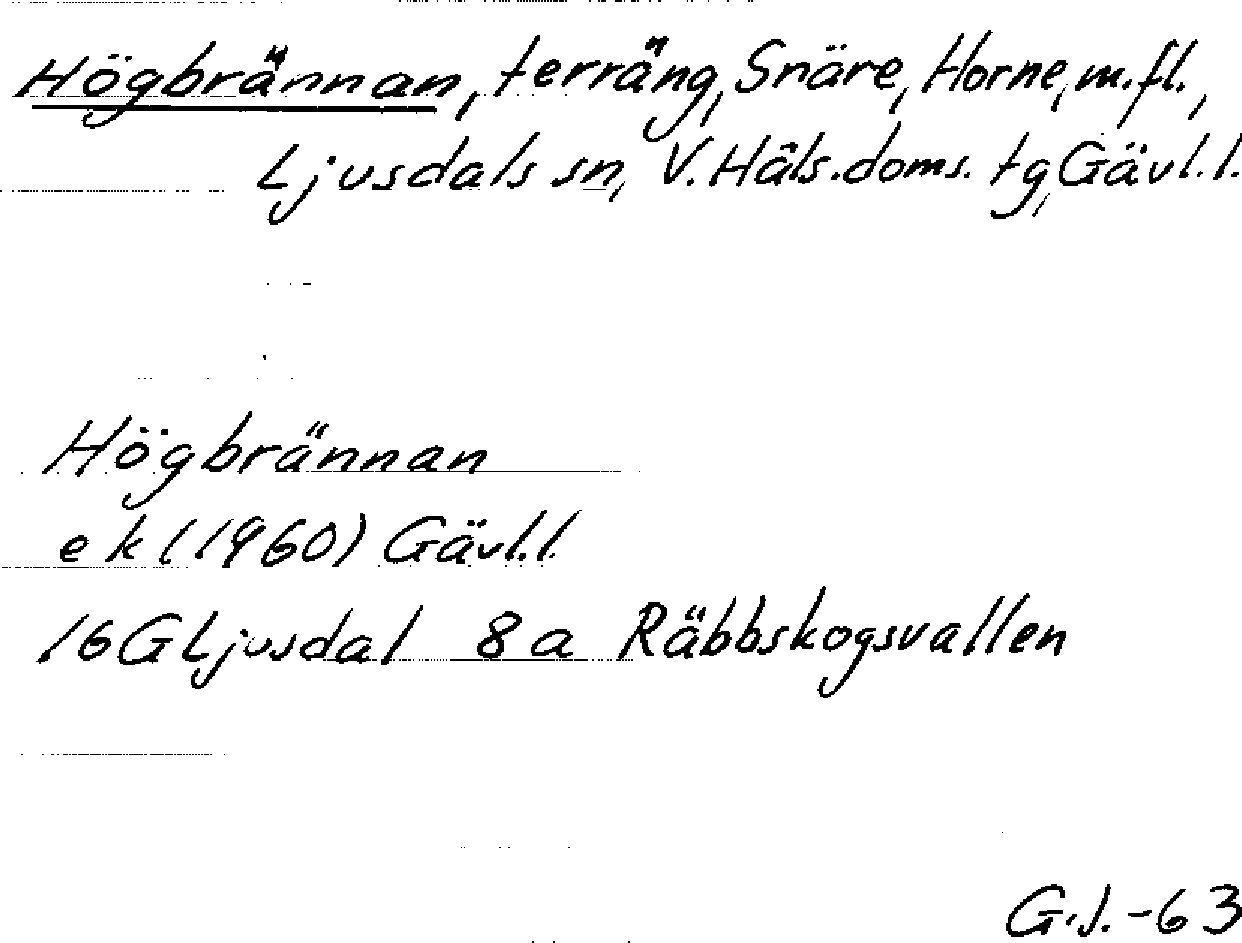 Högbrännan, terräng, Snäre, Horne, m.fl.,
Ljusdals sn, V. Häls. doms. tg, Gävl. l.
Högbrännan
ek (1960) Gävl. l.
16G Ljusdal 8a Räbbskogsvallen
G.J. -63